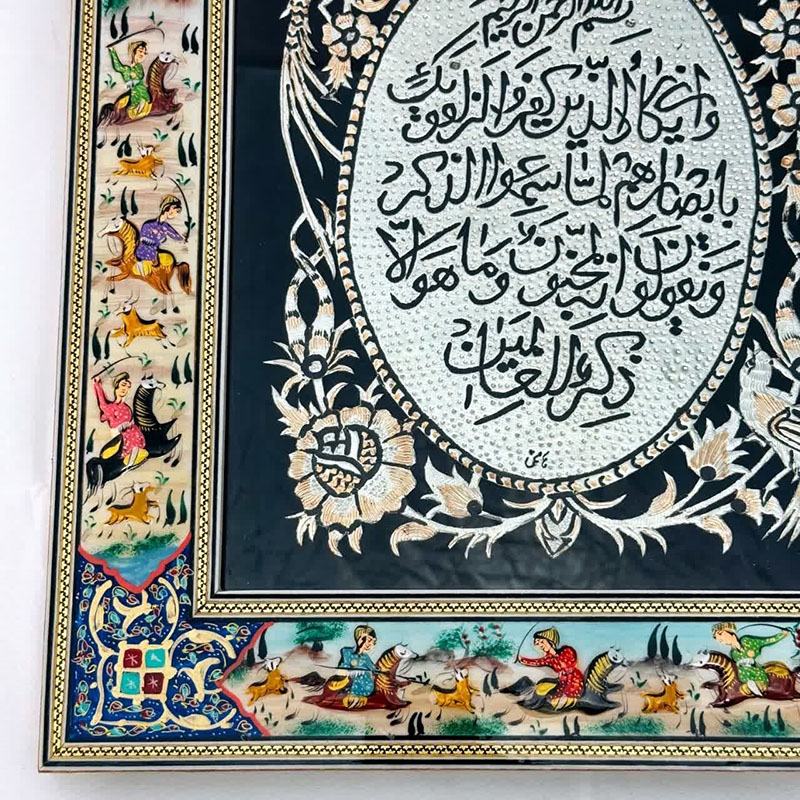 بسم الله الرحمن الرحيم
وان يكاد الذين كفروا ليزلقونك
بابصارهم لمّا سمعوا الذكر
ويقولون انه لمجنون وما هو الّا
ذكر للعالمين